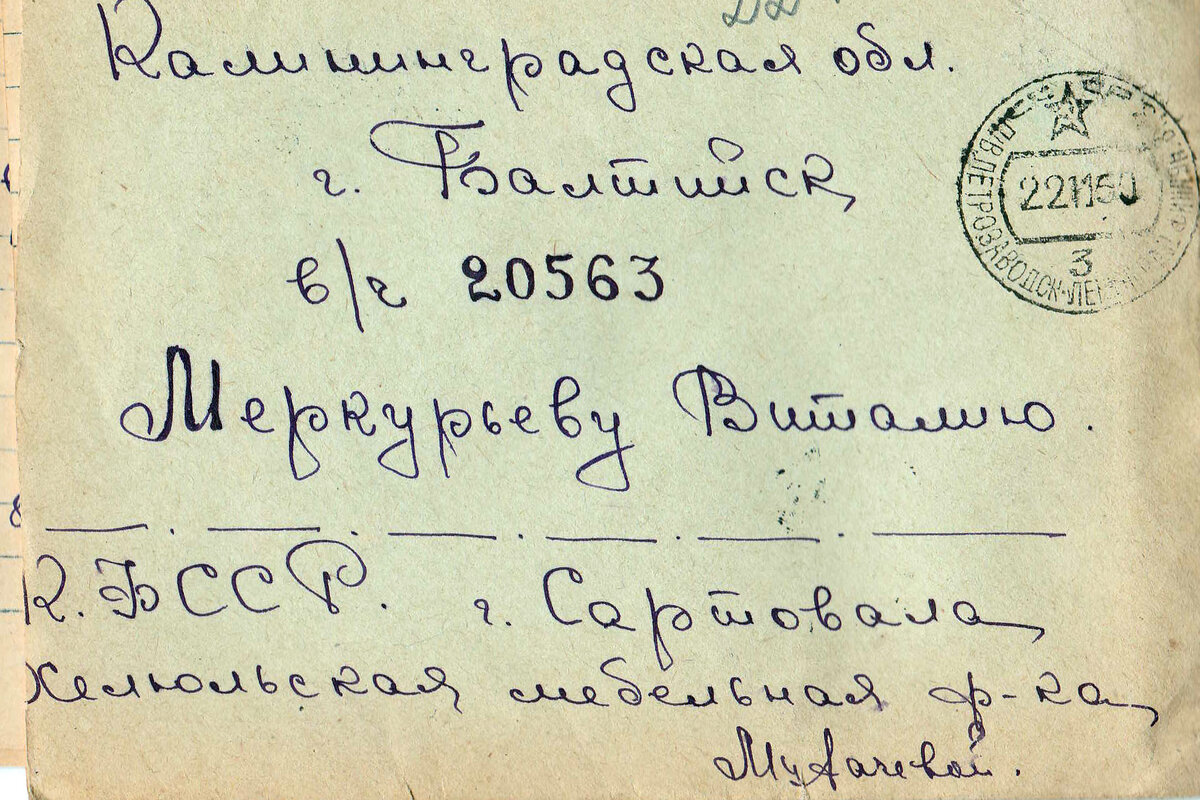 Калининградская обл.
г. Балтийск,
в/ч 20563
Меркурьеву Виталию.
К.ФССР. г. Сартовала,
Хелюльская мебельная ф-ка,
ПЕТРОЗАВОДСК-
221150
3